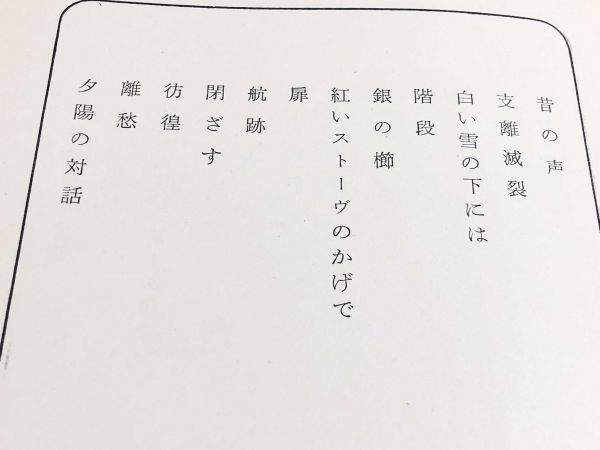 昔の声
支離滅裂
白い雪の下には
階段
銀の櫛
紅いストーヴのかげで
扉
航跡
閉ざす
彷徨
離愁
夕陽の対話